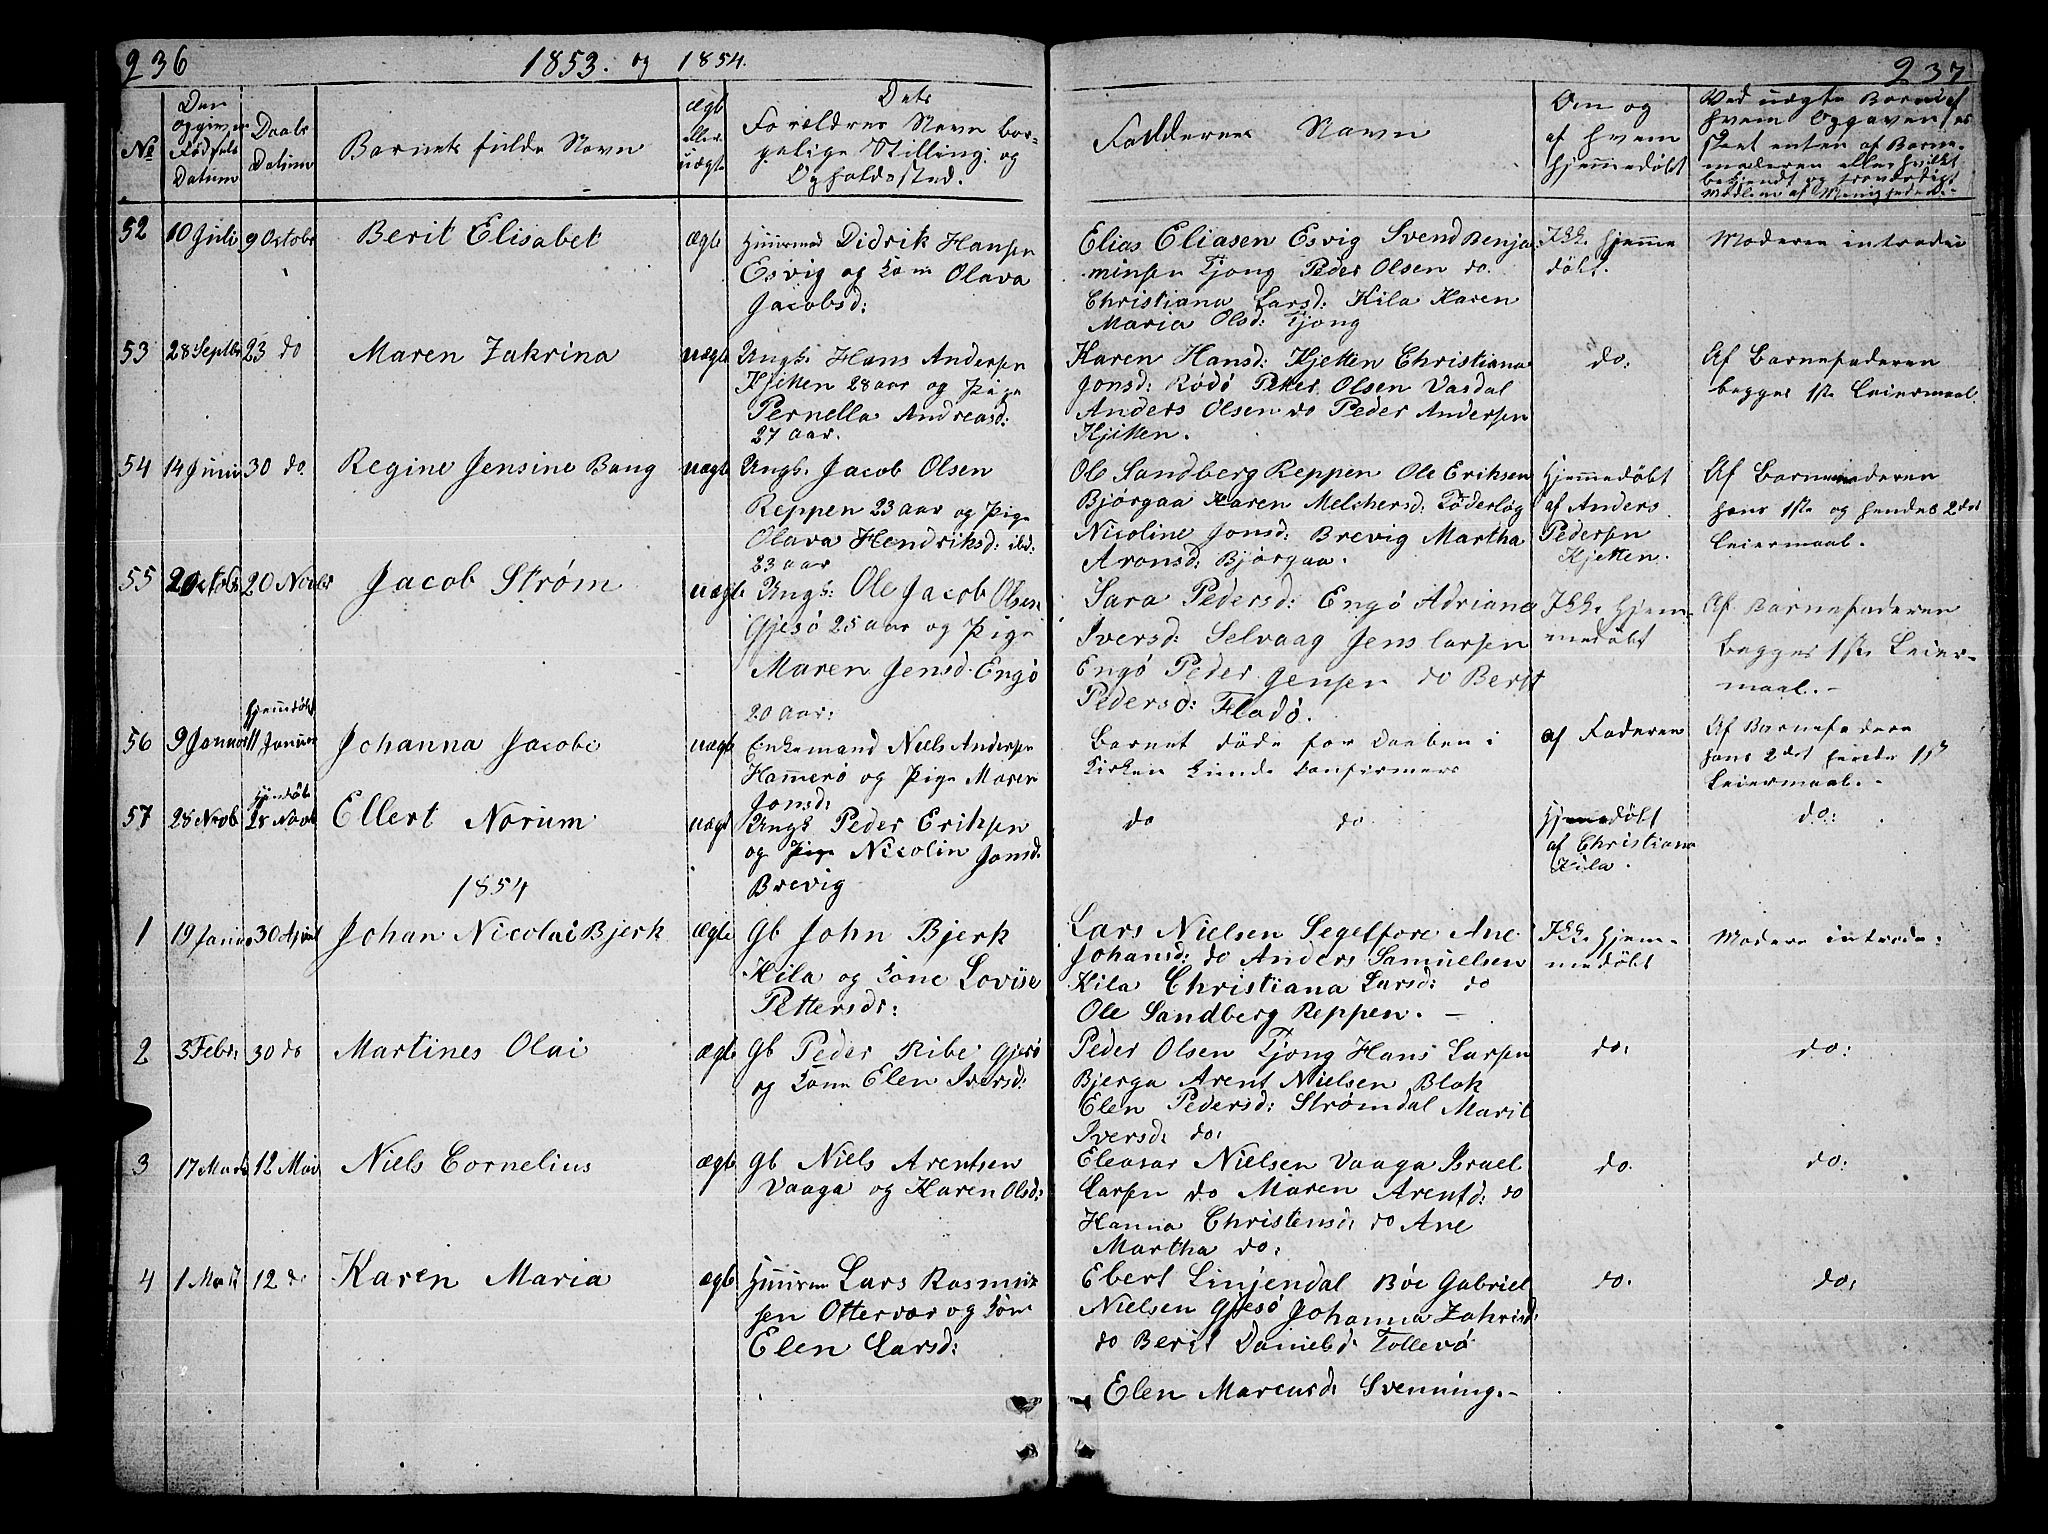 236
1853. og 1854.
237
No
Den opgivne Fødsels Datum
Daabs Datum
Barnets fulde Navn
ægte eller uægte
Dets Forældres Navn borgelige Stilling og Opholdssted.
Faddernes Navn
Om og af hvem hjemmedøbt
52 10 Juli 9 Octobr Berit Elisabet ægte
Huusmd Didrik Hansen
Esvig og Kone Olava
Jacobsd:
Elias Eliasen Esvig Svend Benja
minsen Tjong Peder Olsen do.
Christiana Larsd: Kila Karen
Maria Olsd: Tjong
Ikke hjemme
døbt.
Moderen introdu
53 28 Septbr 23 do Maren Zakrina uægte
Ungk: Hans Andersen
Kjetten 28 aar og Pige
Pernella Andreasd:
27 aar.
Karen Hansd: Kjetten Christiana
Jonsd: Rødø Petter Olsen Vasdal
Anders Olsen do Peder Andersen
Kjetten.
do:
Af Barnefaderen
begges 1ste Leiermaal
54 14 Juni 30 do. Regine Jensine Bang uægte
Ungk: Jacob Olsen
Reppen 23 aar og Pige
Olava Hendriksd: ibd:
23 aar
Ole Sandberg Reppen Ole Eriksen
Bjørgaa Karen Melchersd:
Nicoline Jonsd: Brevig Martha
Aronsd: Bjørgaa.
Hjemmedøbt
af Anders
Pedersen
Kjetten.
Af
hans 1ste og hendes 2det
Leiermaal.
55 20 Novbr Jacob Strøm uægte
Ungk: Ole Jacob Olsen
Gjesø 25 aar og Pige
Maren Jensd. Engø
20 aar:
Sara Pedersd: Engø Adriane
Iversd: Selvaag Jens Larsen
Engø Peder Jensen do Berit
Pedersd: Flodø.
Ikke hjem-
medøbt
Af Barnefaderen
begges 1ste Leier-
maal. -
Hjemmdøbt
56 9 Januar 11 Januar Johanna Jacobe uægte
Enkemand Niels Andersen
Hammerø og Pige Maren
Jonsd:
Barnet døde før Daaben i
Kirken kunde confirmeres
af Faderen
Af Barnefadere
hans 2det hendes 1ste
Leiermaal. -
Hjemdøbt
57 28 Novb 28 Novb Ellert Norum uægt
Ungk Peder Eriksen
og Pige Nicolin Jonsd:
Brevig
do do
Hjemedøbt
af Christiana
Kila.
do:
1854
1 19 Januar 30 April Johan Nicolai Bjerk ægte
Gb John Bjerk
Kila og Kone Lovise
Pettersdr:
Lars Nielsen Segelfore Ane
Johansd: do Anders Samuelsen
Kila Christiana Larsd: do
Ole Sandberg Reppen. -
Ikke hjem-
medøbt
Modere introdu:
2 3 Febr: 30 do Martines Olai ægte
Gb Peder Ribe Gjesø
og Kone Elen Iversd:
Peder Olsen Tjong Hans Larsen
Bjerga Arent Nielsen Blok
Elen Pedersd: Strømdal Marit
Iversd: do:
do:
do:
3 17 Marts 12 Mai Niels Cornelius ægte
Gb Niels Arentsen
Vaaga og Karen Olsd:
Eleasar Nielsen Vaaga Israel
Larsen do Maren Arentd: do
Hanna Christensd: do Ane
Martha do:
do.
do:
4 1 12 do Karen Maria ægte
Huusm Lars Rasmus
sen Ottervær og Kone
Elen Larsd:
Ebert Linjendal Bøe Gabriel
Nielsen Gjesø Johanna Zahrisd:
do Berit Danielsd: Tollevø
Elen Marcusd: Svenning. -
do.
do: